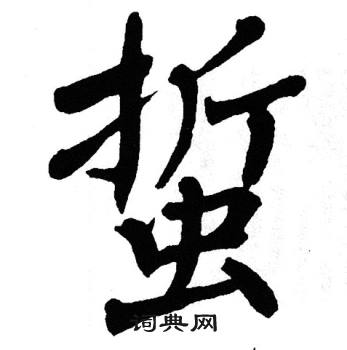 蜇
词典网